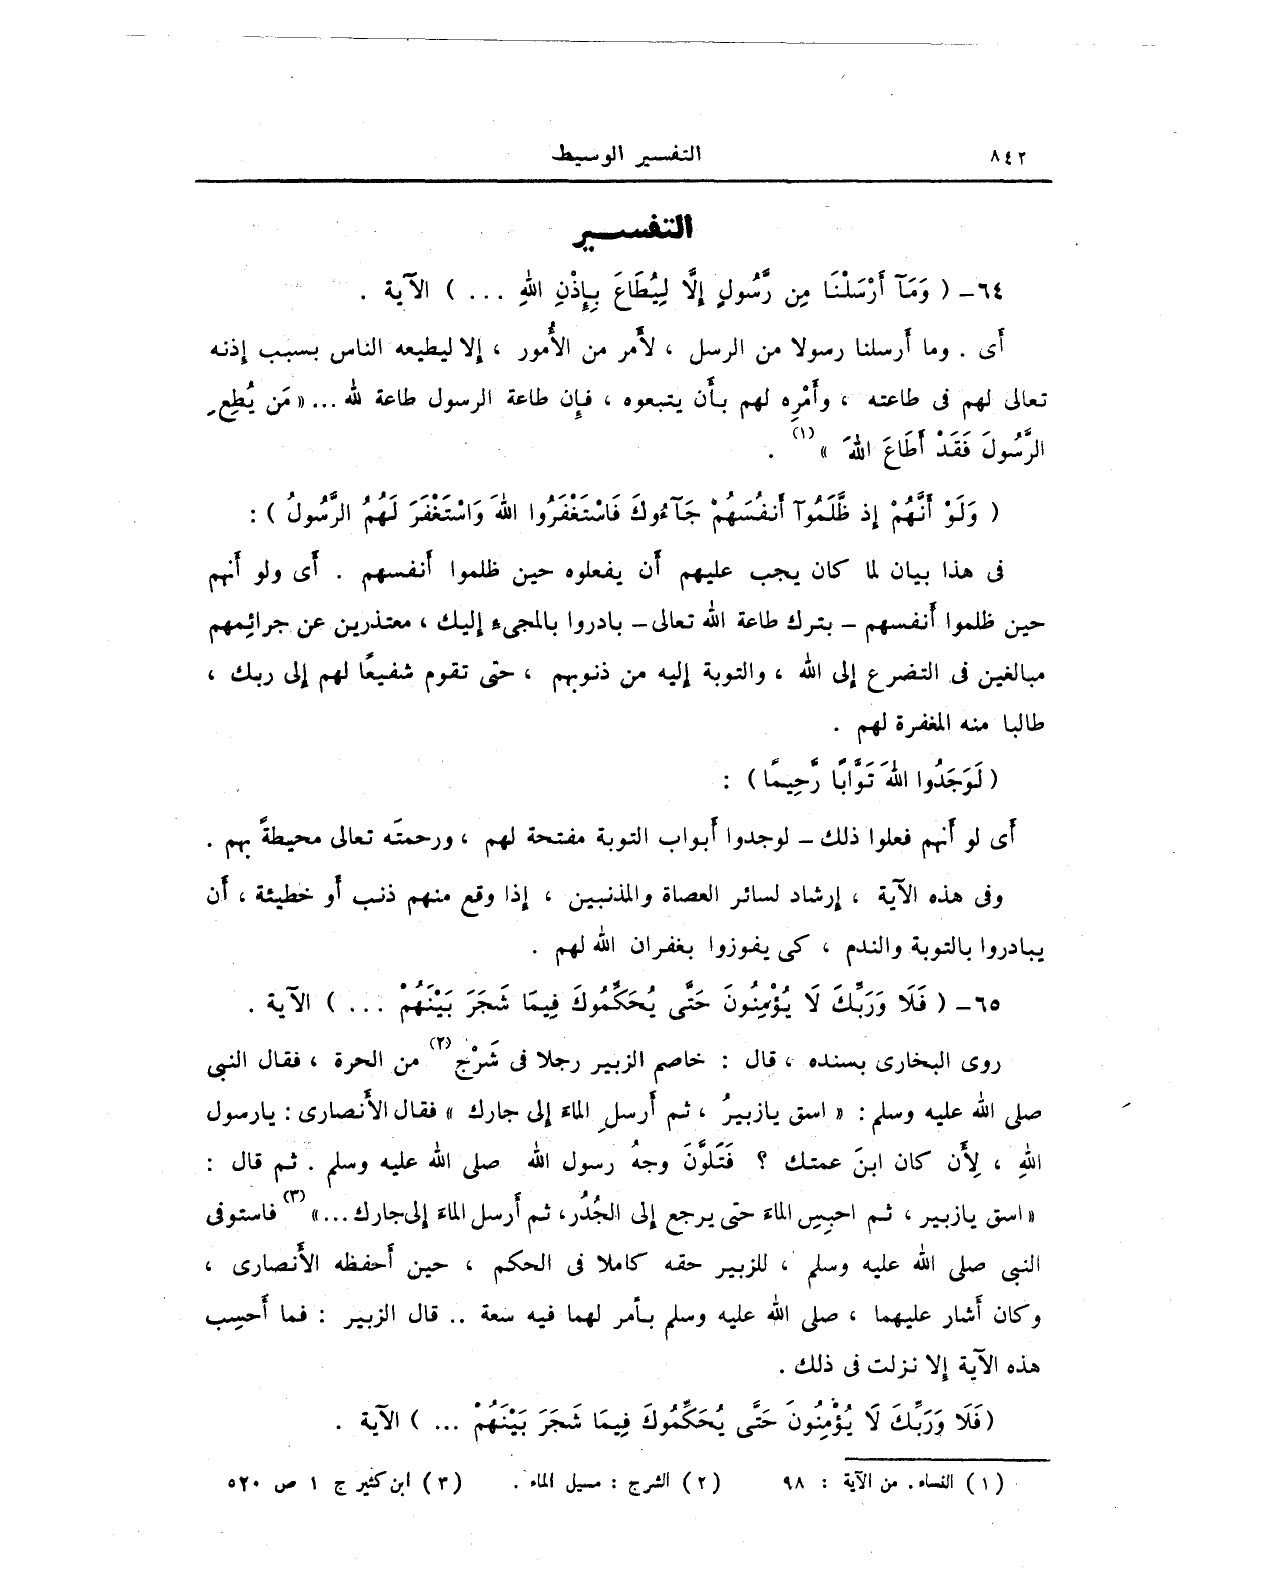 ٨٤٢ التفسير الوسيط
التفسير
٦٤ـ ( وَمَآ أَرْسَلْنَا مِن رَّسُولٍ إِلَّا لِيُطَاعَ بِإِذْنِ اللهِ ... ) الآية .
أى . وما أرسلنا رسولا من الرسل ، لأَمر من الأُمور ، إلا ليطيعه الناس بسبب إذنه
تعالى لهم فى طاعته ، وأَمْرِه لهم بأَن يتبعوه ، فإِن طاعة الرسول طاعة لله ... « مَن يُطِعِ
الرَّسُولَ فَقَدْ أَطَاعَ اللهَ » (١) .
( وَلَوْ أَنَّهُمْ إِذ ظَّلَمُوآ أَنفُسَهُمْ جَآءُوكَ فَاسْتَغْفَرُوا اللهَ وَاسْتَغْفَرَ لَهُمُ الرَّسُولُ ) :
فى هذا بيان لما كان يجب عليهم أَن يفعلوه حين ظلموا أَنفسهم . أَى ولو أَنهم
حين ظلموا أَنفسهم ـ بترك طاعة الله تعالى ـ بادروا بالمجىء إليك ، معتذرين عن جرائمهم
مبالغين فى التضرع إلى الله ، والتوبة إليه من ذنوبهم ، حتى تقوم شفيعًا لهم إلى ربك ،
طالبا منه المغفرة لهم .
( لَوَجَدُوا اللهَ تَوَّابًا رَّحِيمًا ) :
أَى لو أَنهم فعلوا ذلك ـ لوجدوا أَبواب التوبة مفتحة لهم ، ورحمتَه تعالى محيطةً بهم .
وفى هذه الآية ، إرشاد لسائر العصاة والمذنبين ، إذا وقع منهم ذنب أَو خطيئة ، أَن
يبادروا بالتوبة والندم ، كى يفوزوا بغفران الله لهم .
٦٥ـ ( فَلَا وَرَبِّكَ لَا يُؤْمِنُونَ حَتَّى يُحَكِّمُوكَ فِيمَا شَجَرَ بَيْنَهُمْ ... ) الآية .
روى البخارى بسنده ، قال : خاصم الزبير رجلا فى شَرْجٍ (٢) من الحرة ، فقال النبى
صلى الله عليه وسلم : « اسق يازبيرُ ، ثم أَرسلِ الماءَ إلى جارك » فقال الأَنصارى : يارسول
اللهِ ، لِأَن كان ابنَ عمتك ؟ فَتَلَوَّنَ وجهُ رسول الله صلى الله عليه وسلم . ثم قال :
« اسق يازبير ، ثم احبِسِ الماءَ حتى يرجع إلى الجُدُر، ثم أَرسل الماءَ إلى جارك ... » (٣) فاستوفى
النبى صلى الله عليه وسلم ، للزبير حقه كاملا فى الحكم ، حين أَحفظه الأَنصارى ،
وكان أَشار عليهما ، صلى الله عليه وسلم بأَمر لهما فيه سعة .. قال الزبير : فما أَحسِب
هذه الآية إلا نزلت فى ذلك .
( فَلَا وَرَبِّكَ لَا يُؤْمِنُونَ حَتَّى يُحَكِّمُوكَ فِيمَا شَجَرَ بَيْنَهُمْ ... ) الآية .
(١) النساء. من الآية : ٩٨ (٢) الشرج : مسيل الماء . (٣) ابن كثير ج ١ ص ٥٢٠